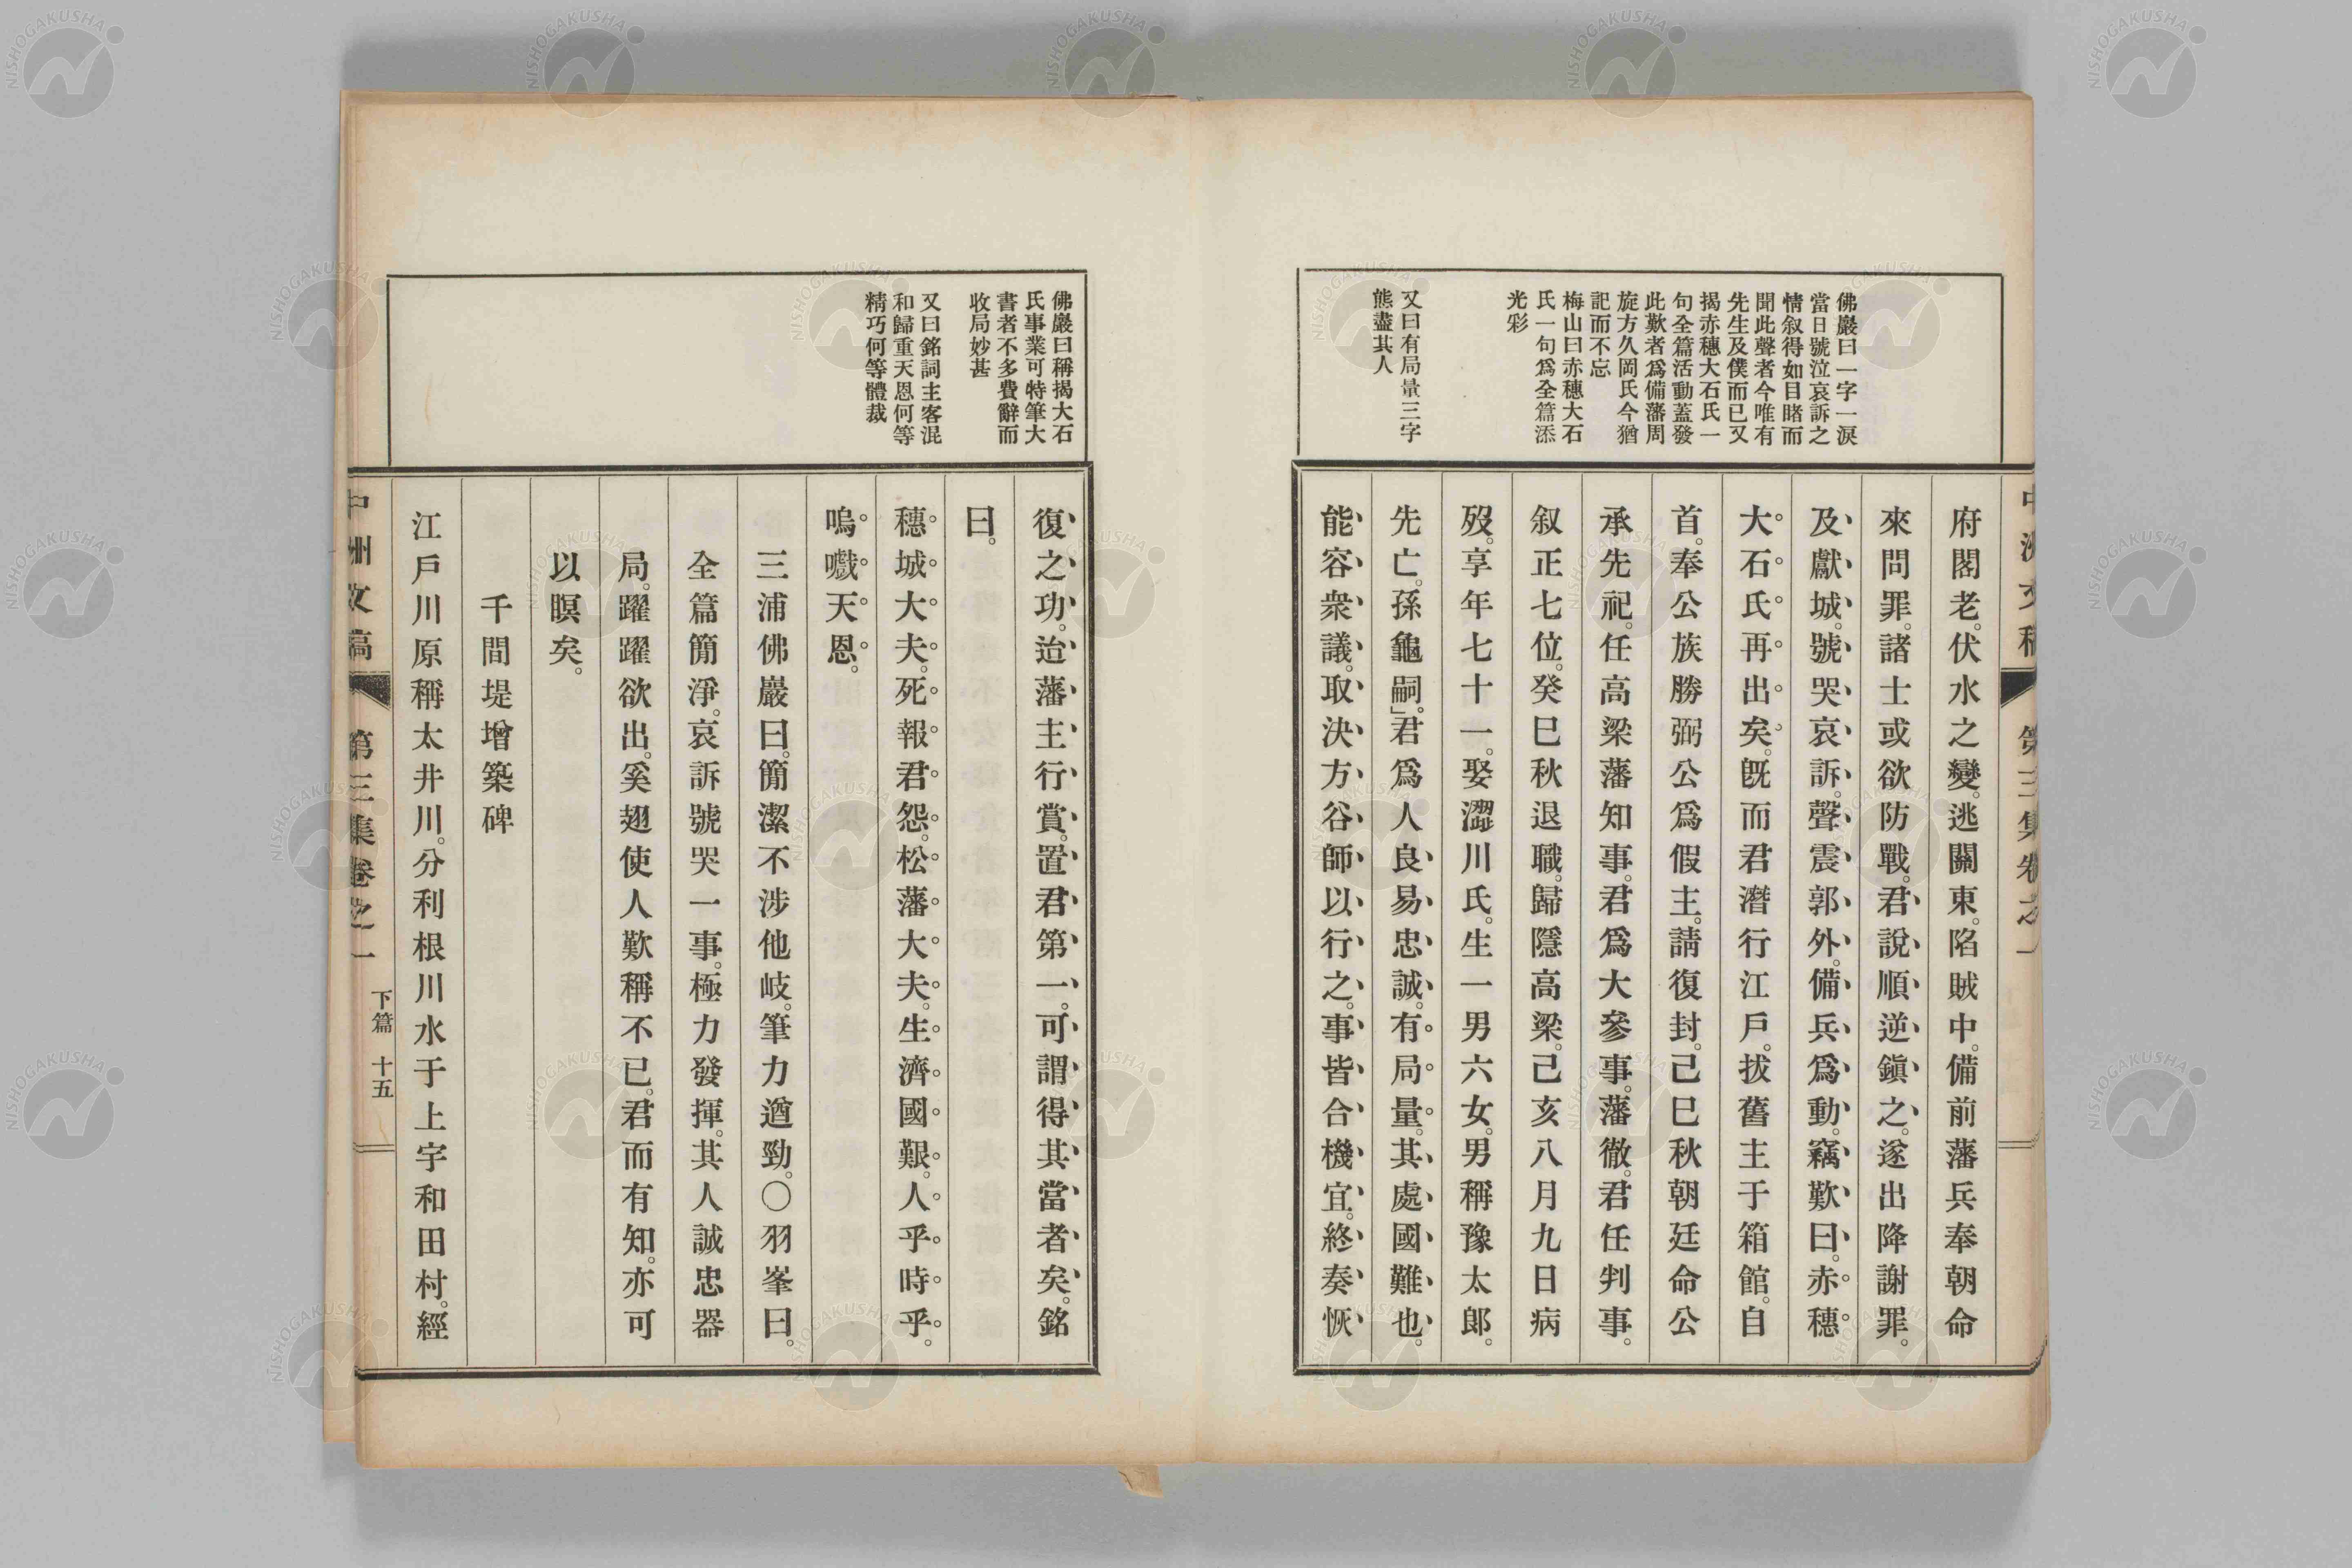 佛巖曰一字一淚
當日號泣哀訴之
情叙得如目睹而
聞此聲者今唯有
先生及僕而已又
揭赤穗大石氏一
句全篇活動蓋發
此歎者爲備藩周
旋方久岡氏今猶
記而不忘
梅山曰赤穗大石
氏一句爲全篇添
光彩
又曰有局量三字
熊盡其人
府閣老。伏水之變。逃關東。陷賊中。備前藩兵奉朝命
來問罪。諸士或欲防戰。君說順逆鎭之。遂出降謝罪。
及獻城。號哭哀訴。聲震郭外。備兵爲動。竊歎曰。赤穗
大石氏再出矣。旣而君潛行江戶。拔舊主于箱館。自
首。奉公族勝弼公爲假主。請復封。己巳秋朝廷命公
承先祀。任高梁藩知事。君爲大參事。藩徹。君任判事。
叙正七位。癸巳秋退職。歸隱高梁。己亥八月九日病
歿。享年七十一。娶澀川氏。生一男六女。男稱豫太郎。
先亡。孫龜嗣。」君爲人良易忠誠。有局量。其處國難也。
能容衆議。取決方谷師以行之。事皆合機宜。終奏恢
中洲文稿 第三集卷之一
佛巖曰稱揭大石
氏事業可特筆大
書者不多費辭而
收局妙甚
又曰銘詞主客混
和歸重天恩何等
精巧何等體裁
復之功。治藩主行賞。置君第一。可謂得其當者矣。銘
曰。
穗城大夫。死報君怨。松藩大夫。生濟國艱。人乎時乎。
嗚嚱天恩。
三浦佛巖曰。簡潔不涉他岐。筆力遒勁。〇羽峯曰。
全篇簡淨。哀訴號哭一事。極力發揮。其人誠忠器
局。躍躍欲出。奚翅使人歎稱不已。君而有知。亦可
以瞑矣。
千間堤增築碑
江戶川原稱太井川。分利根川水于上宇和田村。經
中洲文稿 第三集卷之一 下篇 十五